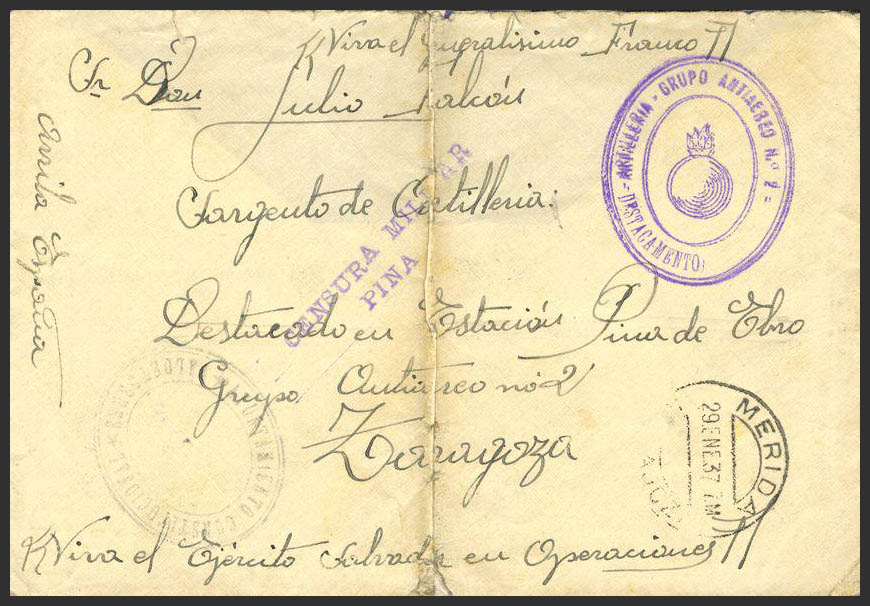 ¡¡Viva el Generalísimo Franco!!
Sr Don Julio Falcón
Sargento de Artilleria.
Destacado en Estación Pina de Ebro
Grupo Antiaereo nº 2
Zaragoza
¡¡Viva el Ejército Salvador en Operaciones!!
Arriba España
ARTILLERIA - GRUPO ANTIAEREO N.º 2 =
- DESTACAMENTO
CENSURA MILITAR
PINA
MERIDA
29 ENE.37 7M
AYUNTAMIENTO CONSTITUCIONAL